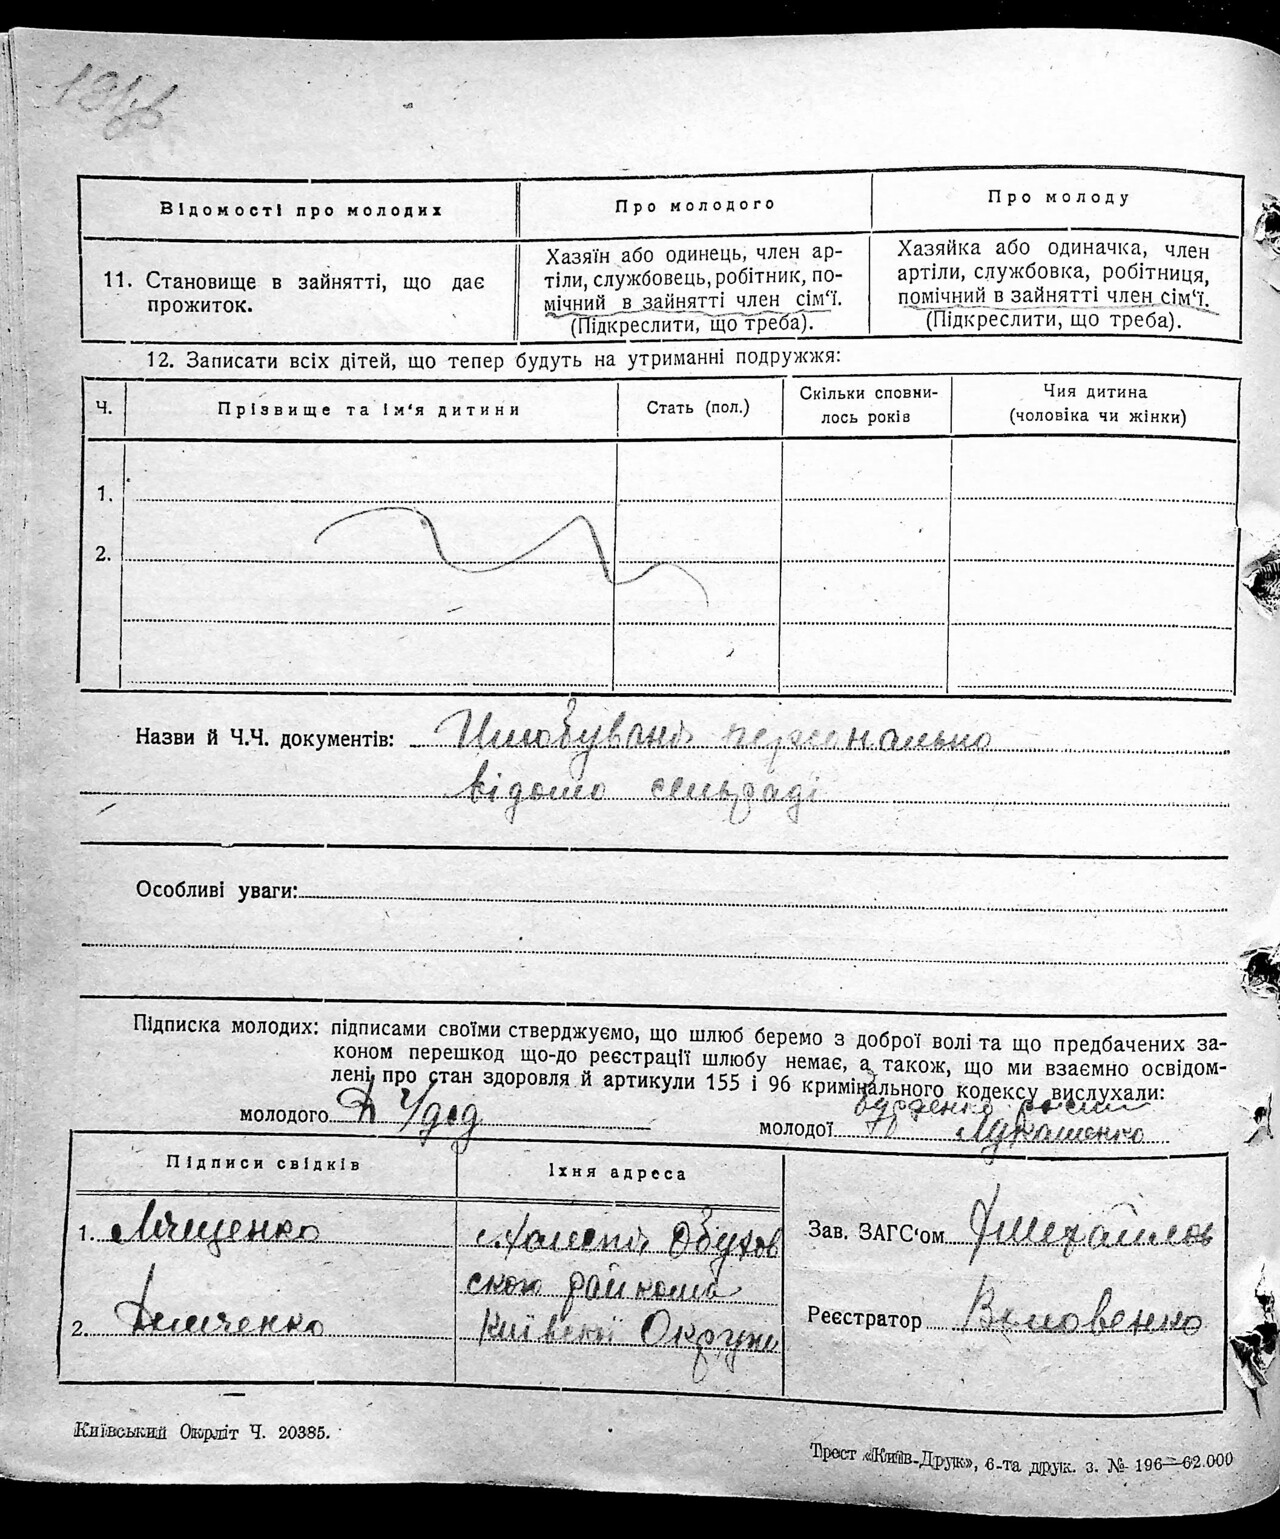 Відомості про молодих
Про молодого
Про молоду
11. Становище в зайнятті, що дає
прожиток.
Хазяїн або одинець, член ар-
тіли, службовець, робітник, по-
мічний в зайнятті член сім'ї.
(Підкреслити, що треба).
Хазяйка або одиначка, член
артіли, службовка, робітниця,
помічний в зайнятті член сім'ї.
(Підкреслити, що треба).
12. Записати всіх дітей, що тепер будуть на утриманні подружжя:
Ч.
Прізвище та ім'я дитини
Стать (пол.)
Скільки сповни-
лось років
Чия дитина
(чоловіка чи жінки)
1.
2.
Назви й Ч.Ч. документів: персонально
відомо сельраді
Особливі уваги:
Підписка молодих: підписами своїми стверджуємо, що шлюб беремо з доброї волі та що предбачених за-
коном перешкод що-до реєстрації шлюбу немає, а також, що ми взаємно освідом-
лені про стан здоровля й артикули 155 і 96 кримінального кодексу вислухали:
молодого Удод
молодої Лукашенко
Підписи свідків
Їхня адреса
1. Міщенко
Обухов
ського району
2. Демченко
Київської Округи
Зав. ЗАГС'ом Михайлов
Реєстратор
Київський Окрліт Ч. 20385.
Трест «Київ-Друк», 6-та друк. з. № 196—62.000